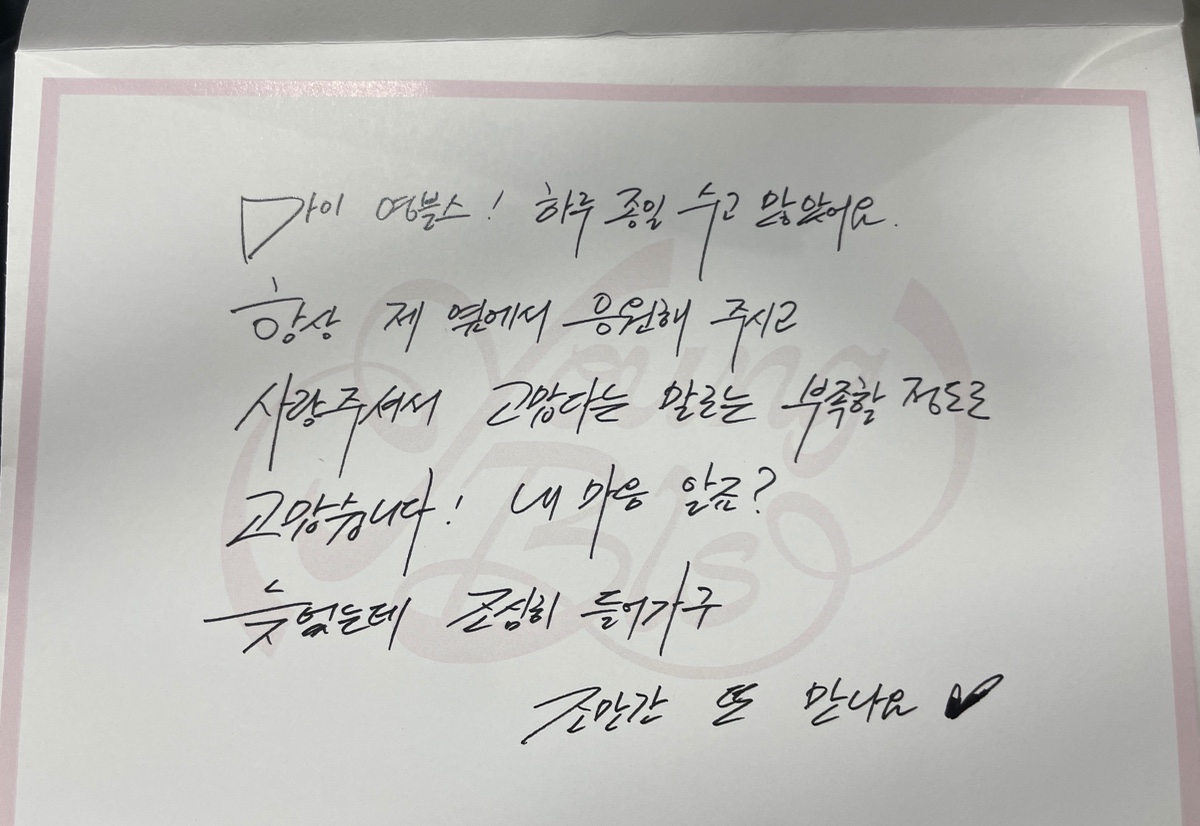 마이 영블스! 하루 종일 수고 많았어요.
항상 제 옆에서 응원해 주시고
사랑주셔서 고맙다는 말로는 부족할 정도로
고맙습니다! 내 마음 알죠?
늦었는데 조심히 들어가구
조만간 또 만나요 ♥
Young
Bls